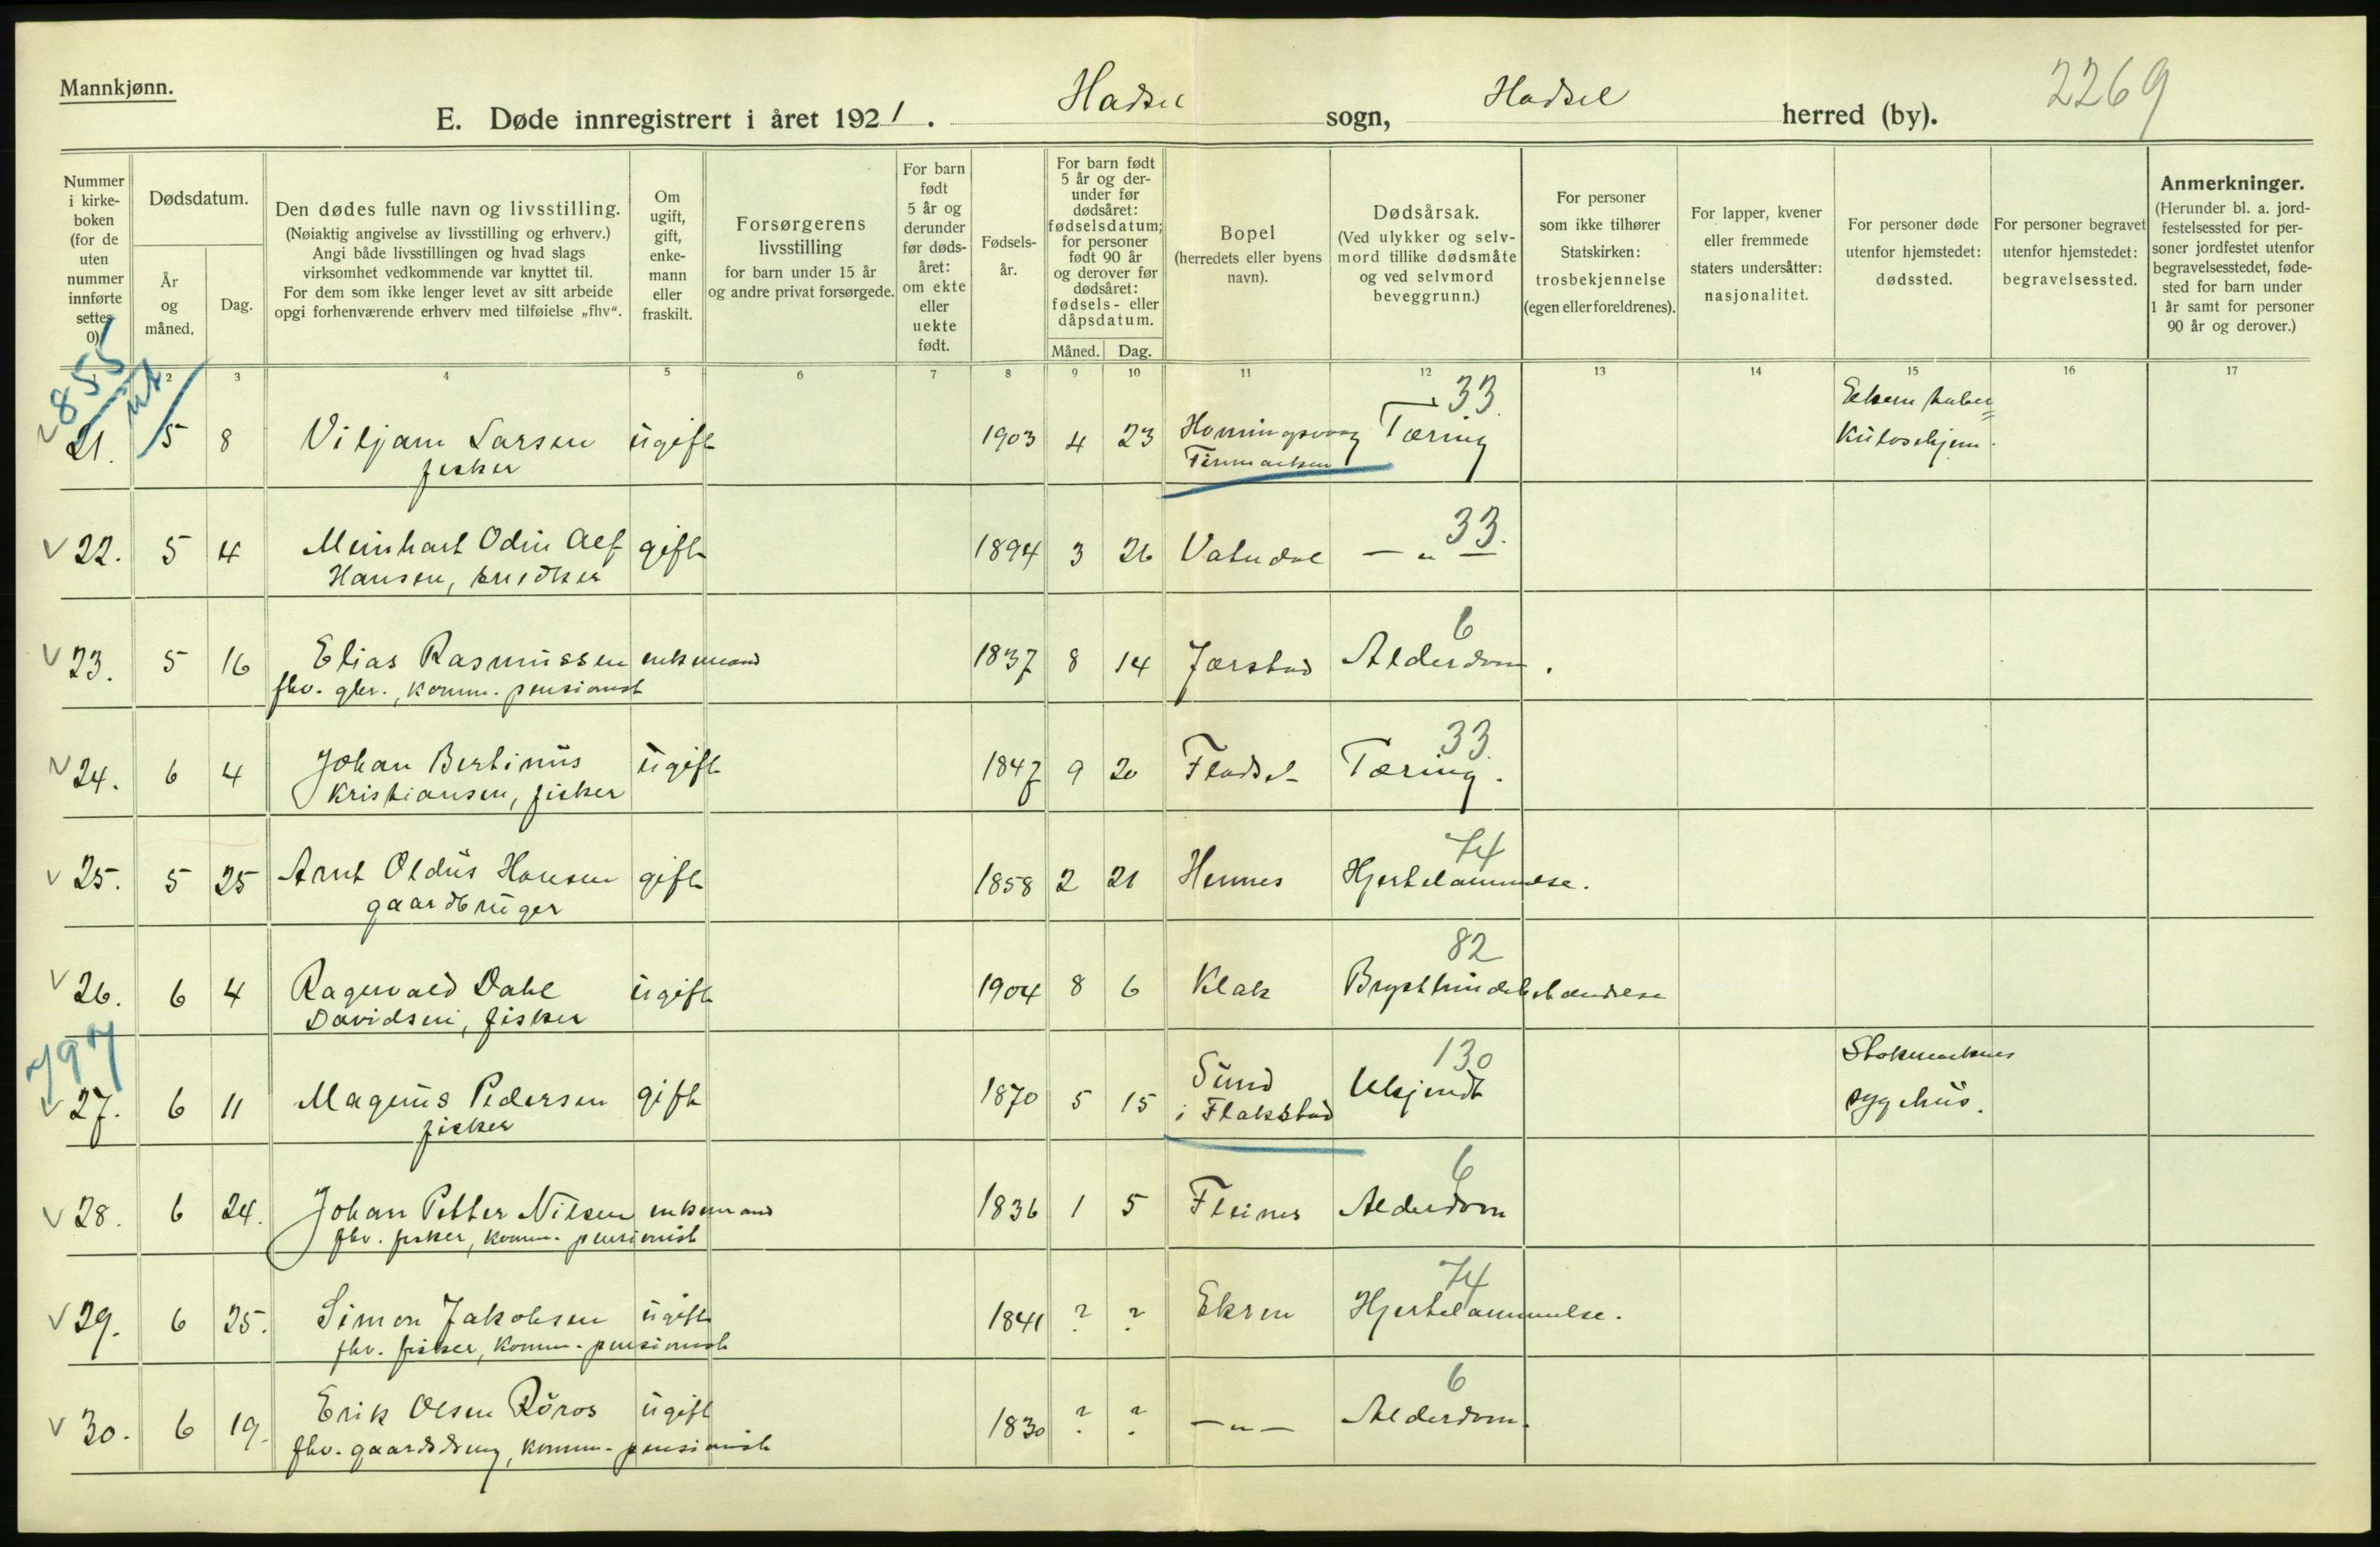 Mannkjønn.
E. Døde innregistrert i året 1921. Hadsel sogn, Hadsel herred (by). 2269
Nummer i kirke-boken (for de uten nummer innførte settes 0).
Dødsdatum.
År og måned.
Dag.
Den dødes fulle navn og livsstilling.
(Nøiaktig angivelse av livsstilling og erhverv.)
Angi både livsstillingen og hvad slags
virksomhet vedkommende var knyttet til.
For dem som ikke lenger levet av sitt arbeide
opgi forhenværende erhverv med tilføielse „fhv“.
Om ugift, gift, enke-mann eller fraskilt.
Forsørgerens livsstilling
for barn under 15 år
og andre privat forsørgede.
For barn født 5 år og derunder før døds-året: om ekte eller uekte født.
Fødsels-år.
For barn født 5 år og der-under før dødsåret: fødselsdatum; for personer født 90 år og derover før dødsåret: fødsels- eller dåpsdatum.
Måned. Dag.
Bopel
(herredets eller byens navn).
Dødsårsak.
(Ved ulykker og selv-mord tillike dødsmåte og ved selvmord beveggrunn.)
For personer som ikke tilhører Statskirken: trosbekjennelse (egen eller foreldrenes).
For lapper, kvener eller fremmede staters undersåtter: nasjonalitet.
For personer døde utenfor hjemstedet: dødssted.
For personer begravet utenfor hjemstedet: begravelsessted.
Anmerkninger.
(Herunder bl. a. jord-festelsessted for per-soner jordfestet utenfor begravelsesstedet, føde-sted for barn under 1 år samt for personer 90 år og derover.)
2 3 4 5 6 7 8 9 10 11 12 13 14 15 16 17
855
21. 5 8 Viljam Larsen ugift 1903 4 23 Honningsvaag Tæring 33.
fisker Finmarken
v 22. 5 4 Meinhart Odin Alf gift 1894 3 26 Vatndal — „ — 33.
Hansen, snedker
v 23. 5 16 Elias Rasmussen enkemand 1837 8 14 Jørstad Alderdom. 6
fhv. gbr., komm. pensionist
v 24. 6 4 Johan Bertinus ugift 1847 9 20 Fladset Tæring. 33.
Kristiansen, fisker
v 25. 5 25 Arnt Oldus Hansen gift 1858 2 21 Hennes Hjertelammelse. 74
gaardbruger
v 26. 6 4 Ragnvald Dahl ugift 1904 8 6 Klak Brysthindebetændelse 82
Davidsen, fisker
797
v 27. 6 11 Magnus Pedersen gift 1870 5 15 Sund i Flakstad Ukjendt 130 Stokmarknes sygehus.
fisker
v 28. 6 24. Johan Petter Nilsen enkemand 1836 1 5 Fleines Alderdom 6
fhv. fisker, komm. pensionist
v 29. 6 25. Simon Jakobsen ugift 1841 ? ? Ekren Hjertelammelse. 74
fhv. fisker, komm. pensionist
v 30. 6 19. Erik Olsen Røros ugift 1830 ? ? — „ — Alderdom. 6
fhv. gaardsdreng, komm. pensionist